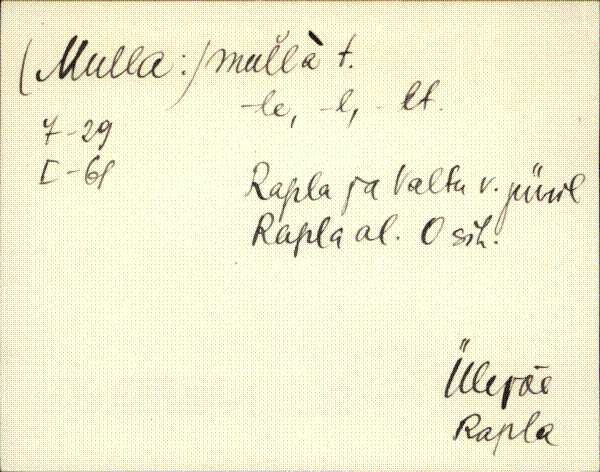 (Mulla:) mul̆là t.
-le, -l, -lt.
7-29
I-61
Rapla ja Valtu v. piiril
Rapla al. O sih.
Ülejõe
Rapla